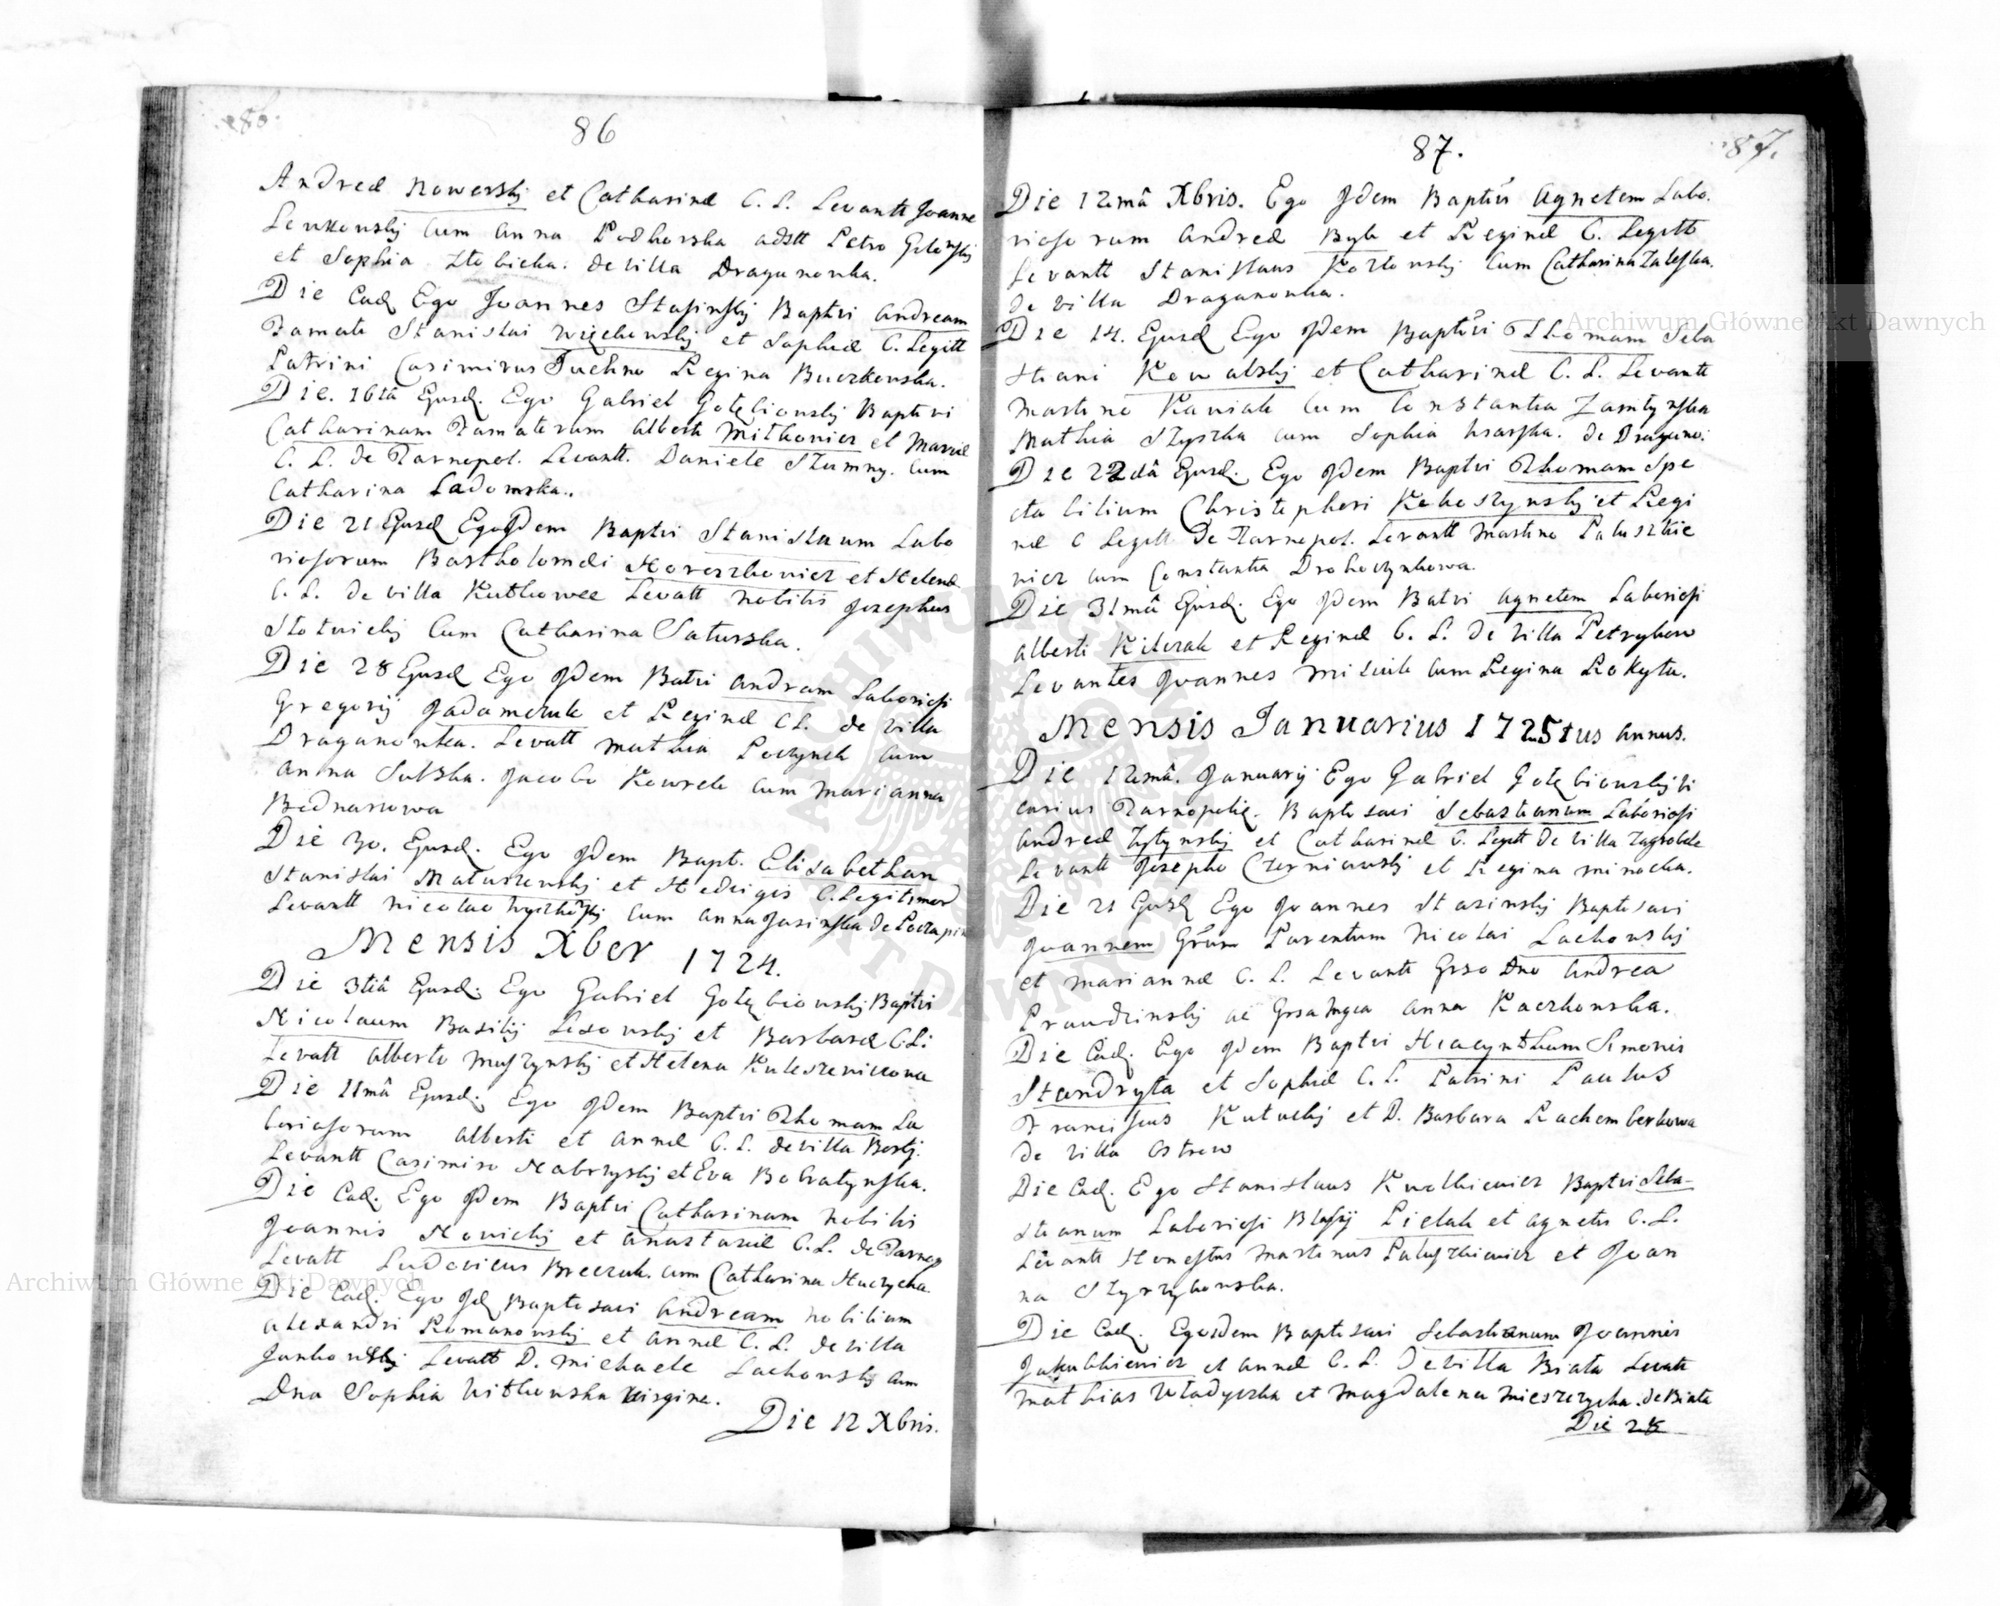 86
Andreæ Noworskij et Catharinæ C. L. Levantt Joanne
Lenkouskij Cum Anna Podhorska adstt Petro
et Sophia Złobicka. de villa Draganouka.
Die Ead Ego Joannes Stasinskij Baptvi Andream
Famate Stanislai Więckowskij et Sophiæ C. Legitt
Patrini Casimirus Tuchno Regina Buczkouska.
Die. 16tâ Ejusd. Ego Gabriel Gołębiouskij Baptvi
Catharinam Famatorum Alberti Mitkovicz et Mariæ
C. L. de Tarnopol. Levantt. Daniele Szumny. Cum
Catharina Ladomska.
Die 21 Ejusd Ego Jdem Baptvi Stanislaum Labo
riosorum Bartholomæi Horoszkovicz et Helenæ
C. L. de villa Kutkowce Levatt Nobilis Josephus
Słotwickij Cum Catharina Saturska.
Die 28 Ejusd Ego Jdem Batvi Andram Laboriosi
Gregorij Jadamczuk et Reginæ CL. de villa
Draganouka. Levatt Mathia Poczynek Cum
Anna Sulska. Jacobo Kowrelo Cum Marianna
Bednarzowa
Die 30. Ejusd. Ego Jdem Bapt. Elisabetham
Stanislai Matuszewskij et Hedvigis C. Legitimor
Levantt Nicolao Cum Anna Jasinska de Poczapin
Mensis Xber 1724.
Die 3tiâ Ejusd. Ego Gabriel Gołębiouskij Baptvi
Nicolaum Basilij Lisouskij et Barbaræ C L:
Levatt Alberto Muszynskij et Helena Kuleszeviczova
Die 11mâ Ejusd. Ego Jdem Baptvi Thomam La
boriosorum Alberti et Annæ C. L. de villa
Levantt Casimiro Nabrzyskij et Eva Bobratynska.
Die Ead. Ego Jdem Baptvi Catharinam Nobilis
Joannis Novickij et Anastasiæ C. L. de Tarnop
Levatt Ludovicus Breczuk. cum Catharina Huczycka
Die Ead. Ego Jd Baptisavi Andream Nobilium
Alexandri Romanouskij et Annæ C. L. de villa
Jankouskij Levatt D. Michaele Lachouskij Cum
Dna Sophia Witkouska Virgine.
Die 12 Xbris.
87.
87.
Die 12mâ Xbris. Ego Jdem Baptvi Agnetem Labo.
riosorum Andreæ Byk et Reginæ C. Legitt
Levantt Stanislaus Kozłouskij Cum Catharina Zaleska.
de villa Draganouka.
Die 14. Ejusd Ego Jdem Baptvi Thomam Seba
stiani Kowalskij et Catharinæ C. L. Levantt
Martino Kaniak Cum Constantia Zamtynska
Mathia Szyszka cum Sophia de Dragano:
Die 22dâ Ejusd. Ego Jdem Baptvi Thomam Spe
ctabilium Christophori Kokoszynskij et Regi
næ C Legitt De Tarnopol. Levantt Martino Paluszkie
vicz cum Constantia Drohoczynkowa.
Die 31mâ Ejusd. Ego Jdem Batvi Agnetem Laboriosi
Alberti Kilczak et Reginæ C. L. De Villa Petrykow
Levantes Joannes Misiuk Cum Regina Rokyta.
Mensis Januarius 1725tus Annus.
Die 12mâ. Januarij Ego Gabriel Gołębiouskij Vi
carius Tarnopolię. Baptisavi Sebastianum Laboriosi
Andreæ Zytynskij et Catharinæ C. Legitt De villa Zagrobele
Levantt Josepho Czerniawskij et Regina Minocka.
Die 21 Ejusd Ego Joannes Stasinskij Baptisavi
Joannem Parentum Nicolai Lachouskij
et Mariannæ C. L. Levantt Grso Dno Andrea
Proudzinskij ac Anna Kaczkouska.
Die Ead. Ego Jdem Baptvi Hiacynthum Simonis
Standryta et Sophiæ C. L. Patrini Paulus
Franciscus Kutuckij et D. Barbara Rachemberkowa
De villa Ostrow
Die Ead. Ego Stanislaus Kwolkiewicz Baptvi Seba-
stianum Laboriosi Blasij Pielak et Agnetis C. L.
Levantt Honestus Martinus Paluszkiewicz et Joan
na Szyrzykouska.
Die Ead. Ego idem Baptisavi Sebastianum Joannis
Jakubkiewicz et Annæ C. L. De villa Biała Levatt
Mathias Władyczka et Magdalena Mieszczycka. de Biała
Die 28
Archiwum Główne Akt Dawnych
Archiwum Główne Akt Dawnych